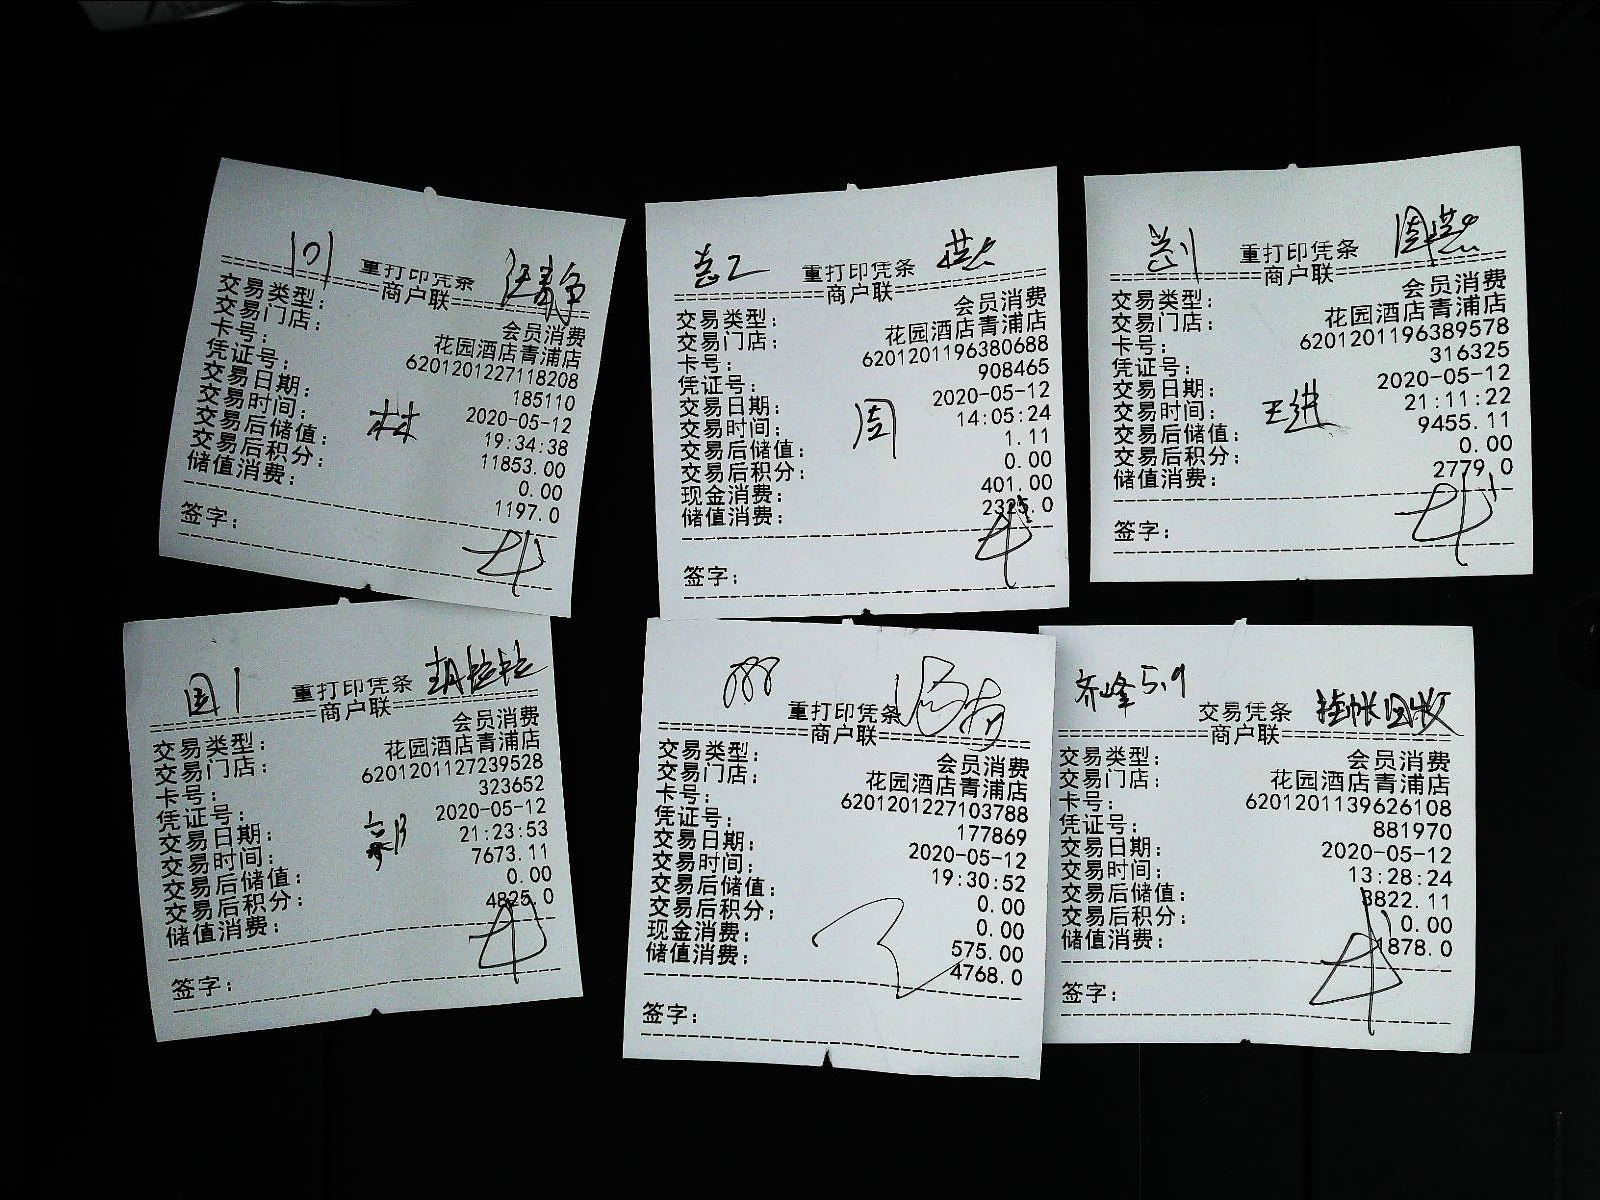 101
重打印凭条
汪静
商户联
交易类型: 会员消费
交易门店: 花园酒店青浦店
卡号: 6201201227118208
凭证号: 185110
交易日期: 2020-05-12
交易时间: 19:34:38
林
交易后储值: 11853.00
交易后积分: 0.00
储值消费: 1197.0
签字:
重打印凭条
商户联
交易类型: 会员消费
交易门店: 花园酒店青浦店
卡号: 6201201196380688
凭证号: 908465
交易日期: 2020-05-12
交易时间: 14:05:24
周
交易后储值: 1.11
交易后积分: 0.00
现金消费: 401.00
储值消费: 2325.0
签字:
重打印凭条
商户联
交易类型: 会员消费
交易门店: 花园酒店青浦店
卡号: 6201201196389578
凭证号: 316325
交易日期: 2020-05-12
交易时间: 21:11:22
王进
交易后储值: 9455.11
交易后积分: 0.00
储值消费: 2779.0
签字:
国1
重打印凭条
胡拉拉
商户联
交易类型: 会员消费
交易门店: 花园酒店青浦店
卡号: 6201201127239528
凭证号: 323652
交易日期: 2020-05-12
交易时间: 21:23:53
交易后储值: 7673.11
交易后积分: 0.00
储值消费: 4825.0
签字:
888
重打印凭条
商户联
交易类型: 会员消费
交易门店: 花园酒店青浦店
卡号: 6201201227103788
凭证号: 177869
交易日期: 2020-05-12
交易时间: 19:30:52
交易后储值: 0.00
交易后积分: 0.00
现金消费: 575.00
储值消费: 4768.0
签字:
齐峰5.9
交易凭条
挂帐回收
商户联
交易类型: 会员消费
交易门店: 花园酒店青浦店
卡号: 6201201139626108
凭证号: 881970
交易日期: 2020-05-12
交易时间: 13:28:24
交易后储值: 3822.11
交易后积分: 0.00
储值消费: 1878.0
签字: